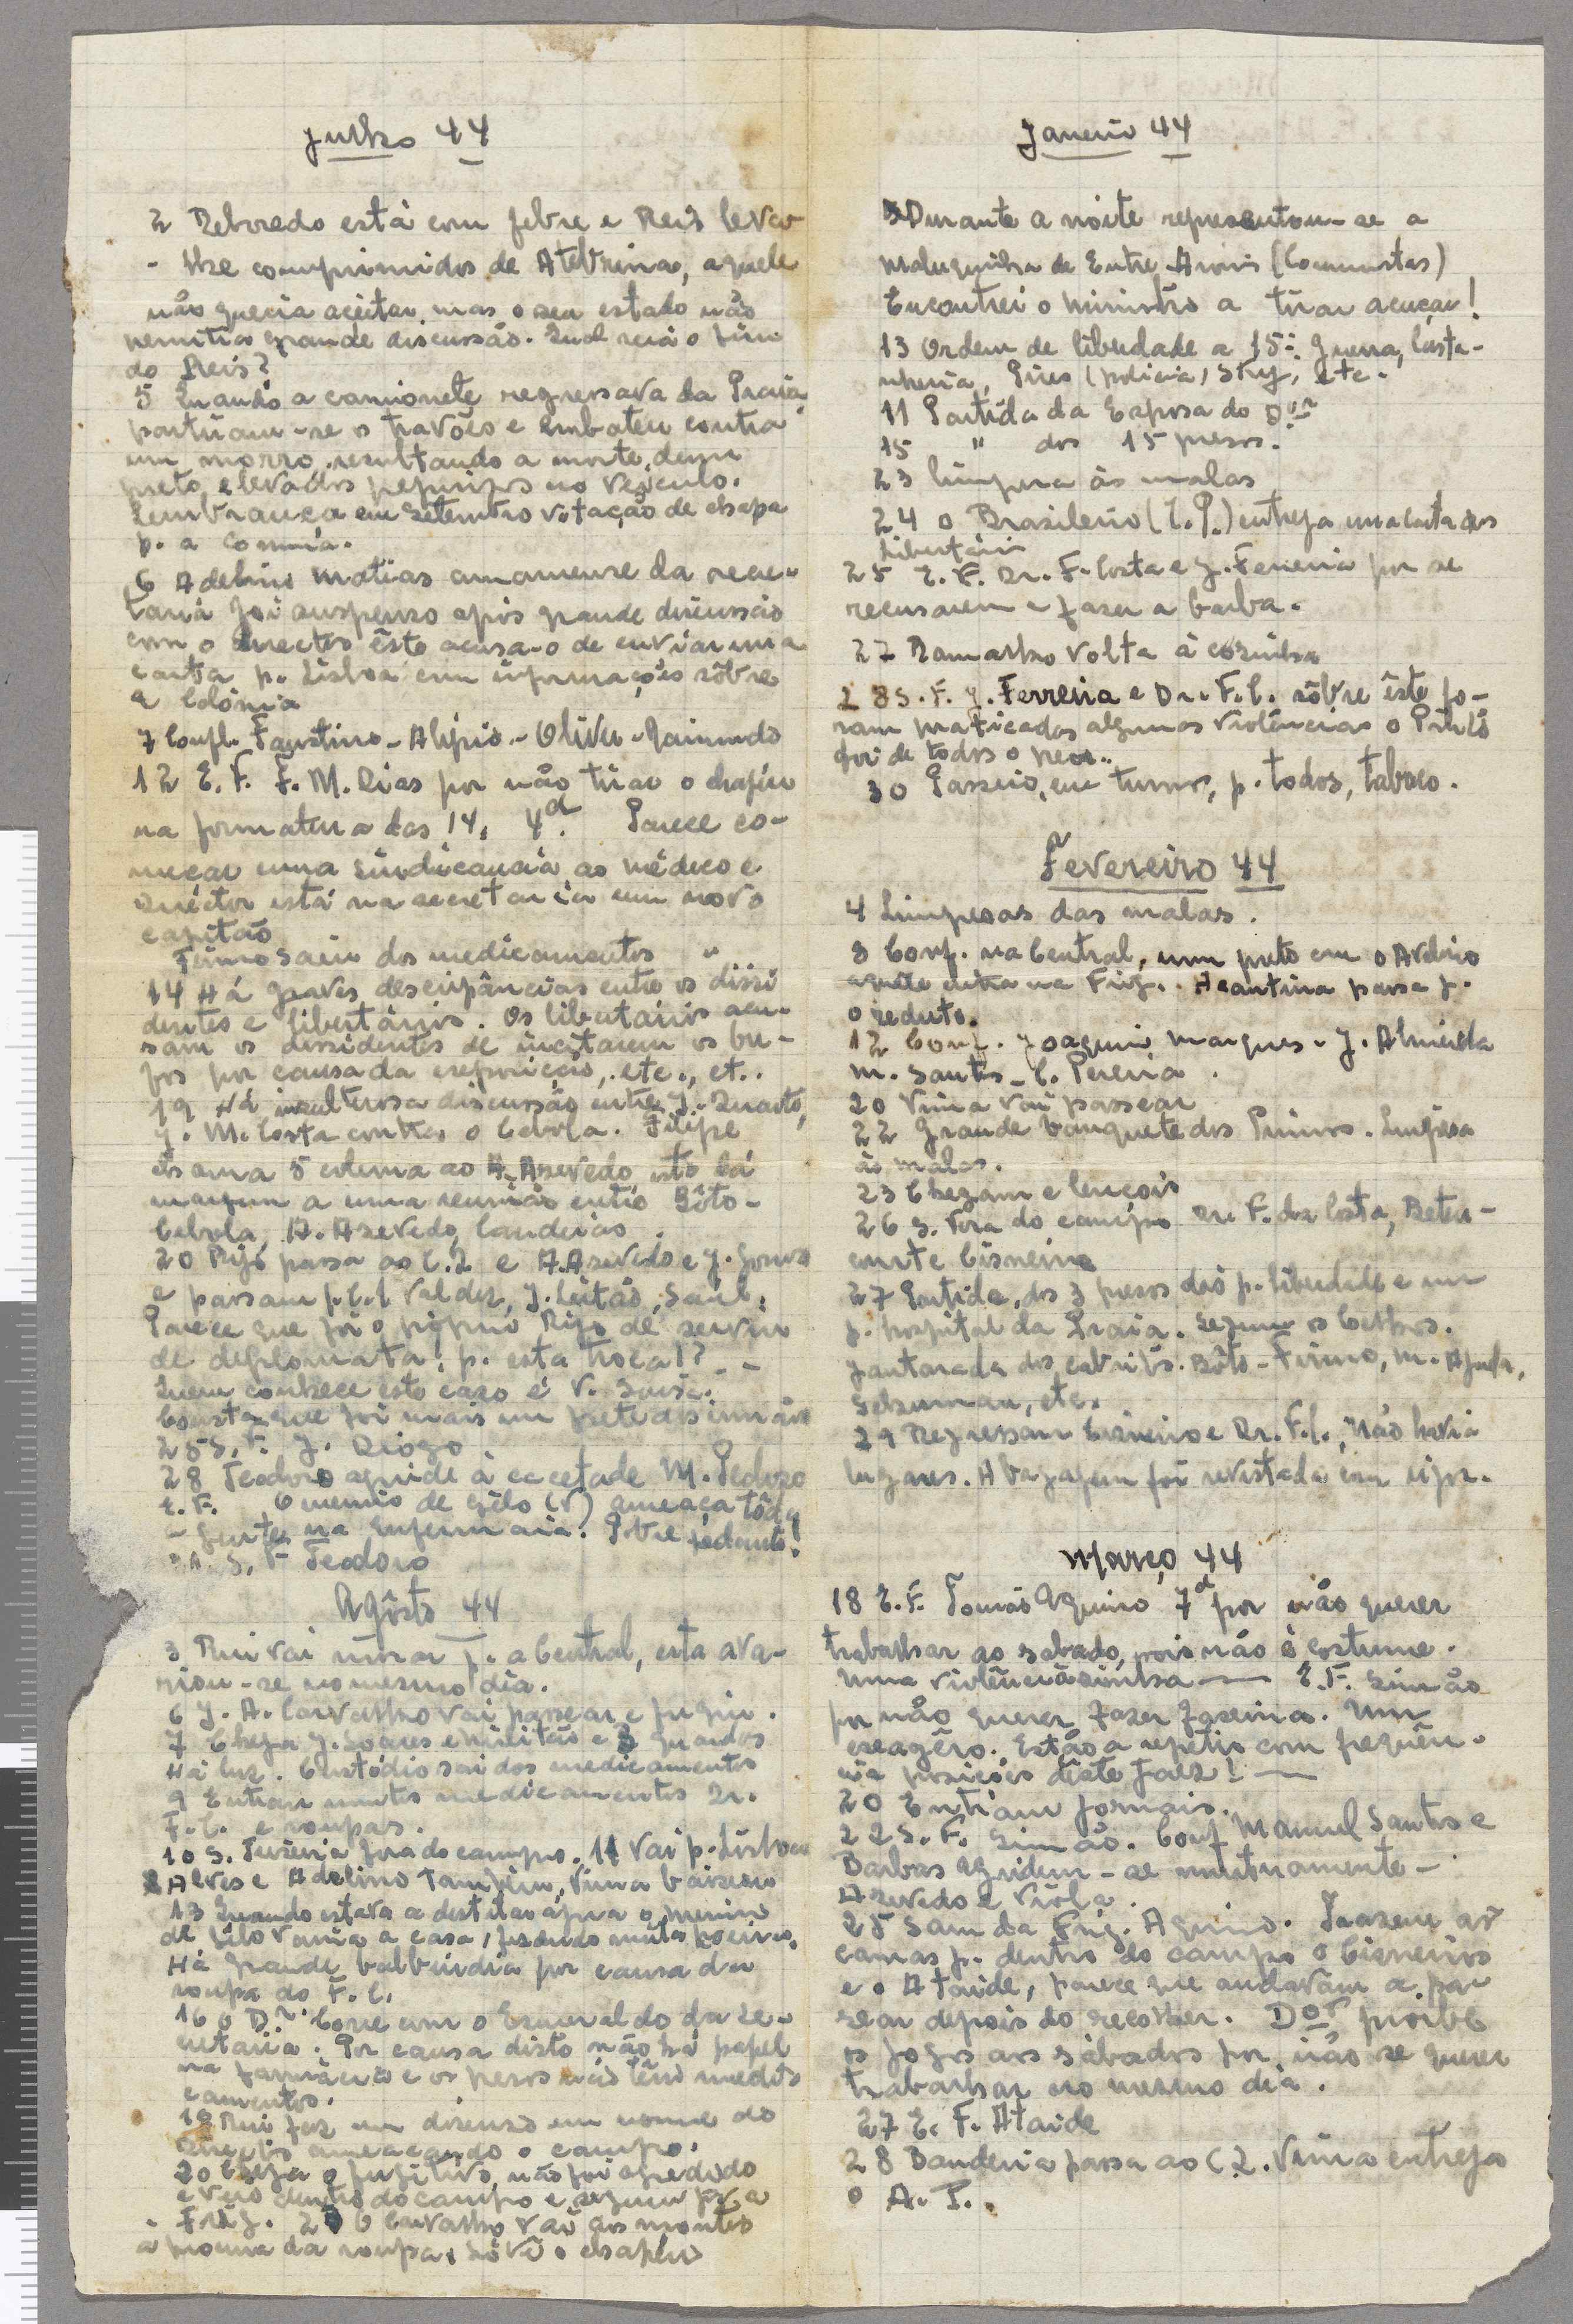 Julho 44
2 Reboredo está com febre e Reis levou
- lhe comprimidos de Atebrina, aquele
não queria aceitar, mas o seu estado não
permitia grande discussão. Qual será o fim
do Reis?
5 Quando a camionete regressava da Praia,
partiram-se os travões e embateu contra
um morro, resultando a morte, dum
preto, e levados prejuizos no veículo.
Lembrança em Setembro votação de chapa
p. a comuna.
6 Adelino Matias amanuense da secre-
taria foi suspenso após grande discussão
com o director êste acusa-o de enviar uma
carta p. Lisboa com informações sôbre
a Colónia
7 Conf. Faustino - Alipio - Oliver - Jaimundo
12 E. F. F. M. Dias por não tirar o chapéu
na formatura das 14, 4d. Parece co-
meçar uma sindicancia ao médico e
Director está na secretaria um novo
capitão
Firmo saiu dos medicamentos "
14 Há graves descripâncias entre os dissi
dentes e libertários. Os libertários acu-
sam os dissidentes de incitarem os bu-
fos por causa da exposição, etc., et..
19 Há discussão entre J. Duarte,
J. M. Costa contra o Cebola. Filipe
chama 5 coluna ao A. Azevedo, isto dá
margem a uma reunião entre Bôto -
Cebola, A. Azevedo, Candeias.
20 Rijo passa ao C.2 e A. Azevedo e J. Sousa
e passam p. C.1 Valdez, J. Leitão, Saúl.
Parece que foi o próprio Rijo de serviu
de deplomata! p. esta troca!? - -
Quem conhece este caso é V. Sousa.
Consta que foi mais um frete dos irmãos
25 S. F. J. Diogo.
28 Teodoro agride à cacetade M. Pedoro
E. F. O menino de grilo (V) ameaça tôda
- gente na Enfermaria. Pobre pedante!
S. F Teodoro
Agôsto 44
3 Rui vai p. a Central, esta ava-
riou-se no mesmo dia.
6 J. A. Carvalho vai passear e fugiu.
7 Chega J. Soares e Militão e 3 guardas
Há luz. Custódio sai dos medicamentos
9 Entram muitos medicamentos Dr.
F. C. e roupas.
10 S. Teixeira fora do campo. 11 vai p. Lisboa
Alves e Adelino também, Vima baixou
13 Quando estava a destilar água o menino
de grilo varria a casa, fazendo muita poeira.
Há grande balburdia por causa da
roupa do F. C.
16 O Dr. Corre com o Esmeraldo da se-
cretaria. Por causa disto não há papel
na farmácia e os presos não têm medi-
camentos.
18 Rui faz um discurso em nome do
Director ameaçando o campo.
20 Chega o fugitivo, não foi agredido
e veio dentro do campo e seguiu p. a
- Frig. 23 O Carvalho vai aos montes
a procura da roupa, só vê o chapéu
Janeiro 44
3 Durante a noite representou-se a
Maluquinha de Entre-Arroios (Comunistas)
Encontrei o Ministro a tirar açucar!
13 Ordem de liberdade a 15: Guerra, Casta-
nheira, Pires (policia), Stry, Etc.
11 Partida da Esposa do Dor
15 " dos 15 presos.
23 limpesa às malas
24 O Brasileiro (T. P.) entrega uma carta aos
libertários
25 E. F. Dr. F. Costa e J. Ferreira por se
recusarem a fazer a barba.
27 Ramalho volta à cozinha
28 S. F. J. Ferreira e Dr. F. C. sôbre êste fo-
ram praticadas algumas violências o Piriló
foi de todos o peor..
30 Passeio, em turnos, p. todos, tabaco.
Fevereiro 44
4 Limpesas das malas.
8 Conf. na Central, um preto com o Avelino
aquele entra na Frig.. A cantina passa p.
o reduto.
12 Conf. Joaquim Marques - J. Almeida
M. Santos - C. Pereira.
20 Vima vai passear
22 Grande banquete dos Primos. Limpesa
às malas.
23 Chegam e lençois
26 S. Fora do campo Dr. F. da Costa, Beten-
court e Cisneiros
27 Partida, dos 3 presos dois p. liberdade e um
p. hospital da Praia. Seguem os Coelhos.
Jantarada dos cabritos. Bôto - Firmo, M. Ajuda,
Gelsumar, etc.
29 Regressam Cisneiros e Dr. F. C., não havia
lugares. A bagagem foi revistada com rigor.
Março 44
18 E. F. Tomás Aquino 7d por não querer
trabalhar ao sabado, pois não é costume.
Uma violênciasinha — E. F. Simão
por não querer fazer faxina. Um
exagêro. Estão a repetir com frequên-
cia prisiões dêste faez! —
20 Entram jornais.
22 S. F. Simão. Conf Manuel Santos e
Barbas agridem-se mutuamente -
Azevedo e Viola.
25 Sam da Frig. Aquino. Trazem as
camas p. dentro do campo o Cisneiros
e o Ataide, parece que andavam a pas-
sear depois do recolher. Dor proibe
os jogos aos sábados por não se querer
trabalhar no mesmo dia.
27 E. F. Ataide
28 Bandeira passa ao C2. Vima entrega
o A. T..